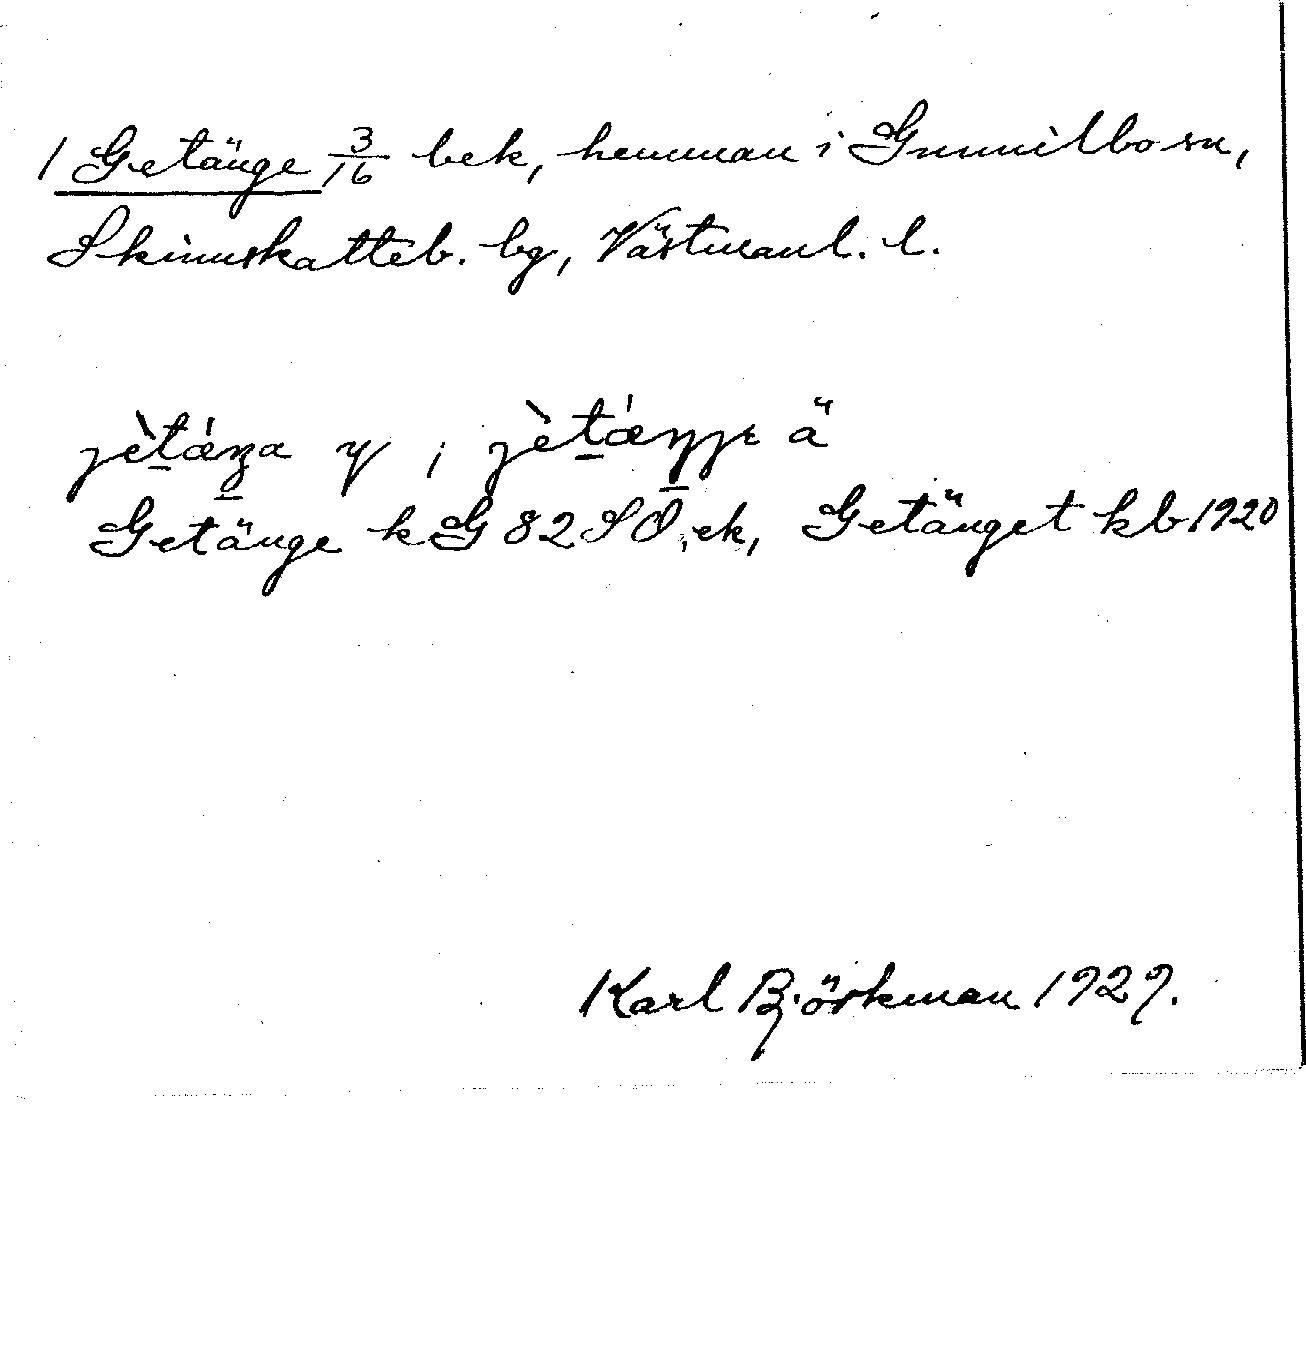 1 Getänge 3/16 bek, hemman i Gunnilbo sn,
Skinnskatteb. bg, Västmanl. l.
y ; ä
Getänge k G 82 SÖ, ek, Getänget kb 1920
Karl Björkman 1929.